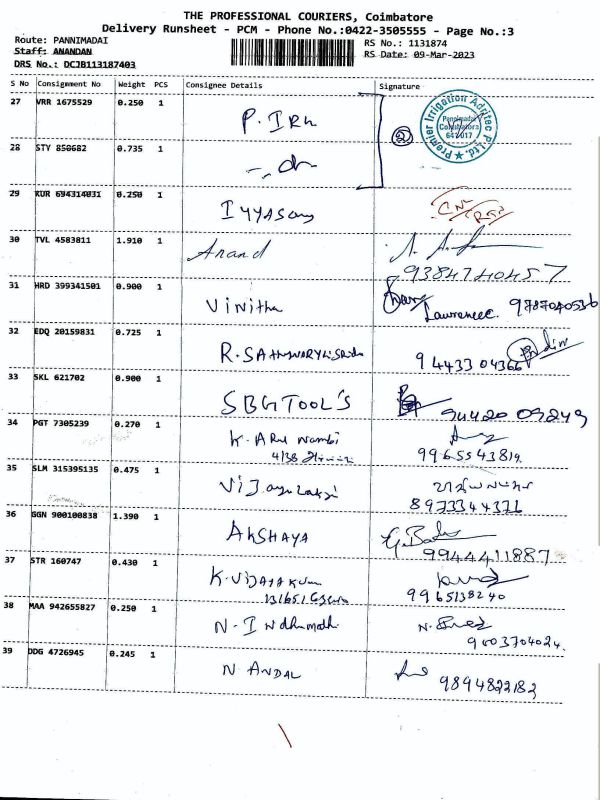 THE PROFESSIONAL COURIERS, Coimbatore
Delivery Runsheet - PCM - Phone No.:0422-3505555 - Page No.:3
Route: PANNIMADAI
RS No.: 1131874
Staff: ANANDAN
RS Date: 09-Mar-2023
DRS No.: DCJB113187403
S No Consignment No Weight PCS Consignee Details Signature
27 VRR 1675529 0.250 1
P. IRn
Premier Irrigation Adritec P Ltd.
Pannimadai
Coimbatore
641017
2
28 STY 850682 0.735 1
29 KUR 694314031 0.250 1
IYYASamy
30 TVL 4583811 1.910 1
Anand
9384740457
31 HRD 399341501 0.900 1
Vinitha
Lawrence. 9787040536
32 EDQ 20159831 0.725 1
9443304366
33 SKL 621702 0.900 1
SBG TOOL'S
94420 09249
34 PGT 7305239 0.270 1
K. ARul Nambi
4/38
9965543819.
35 SLM 315395135 0.475 1
Vijayalakxi
8973344371
36 GGN 900100838 1.390 1
AKSHAYA
9944411887
37 STR 160747 0.430 1
K. VIJAYAKUm
9965138240
38 MAA 942655827 0.250 1
N. Indhumathi
9003704024.
39 DDG 4726945 0.245 1
N ANDAL
9894822182